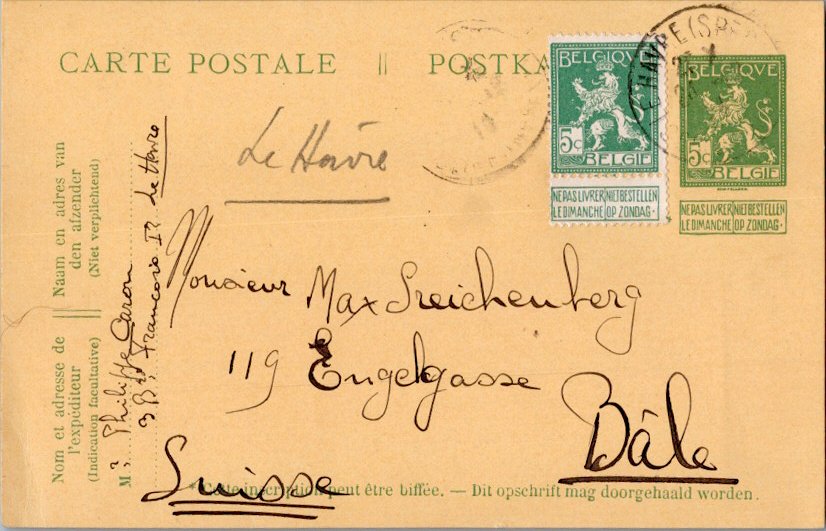 CARTE POSTALE || POSTKA
LE HAVRE (SPE
BELGIQVE
5c
BELGIE
NE PAS LIVRER NIET BESTELLEN
LE DIMANCHE OP ZONDAG.
BELGIQVE
5c
BELGIE
NE PAS LIVRER NIET BESTELLEN
LE DIMANCHE OP ZONDAG.
Le Havre
Naam en adres van
den afzender
(Niet verplichtend)
Nom et adresse de
l'expéditeur
(Indication facultative)
M : Philippe Caron
3 Bd François Ir Le Havre
Monsieur Max Sreichenberg
119 Engelgasse
Bâle
Suisse
* Cette inscription peut être biffée. — Dit opschrift mag doorgehaald worden.